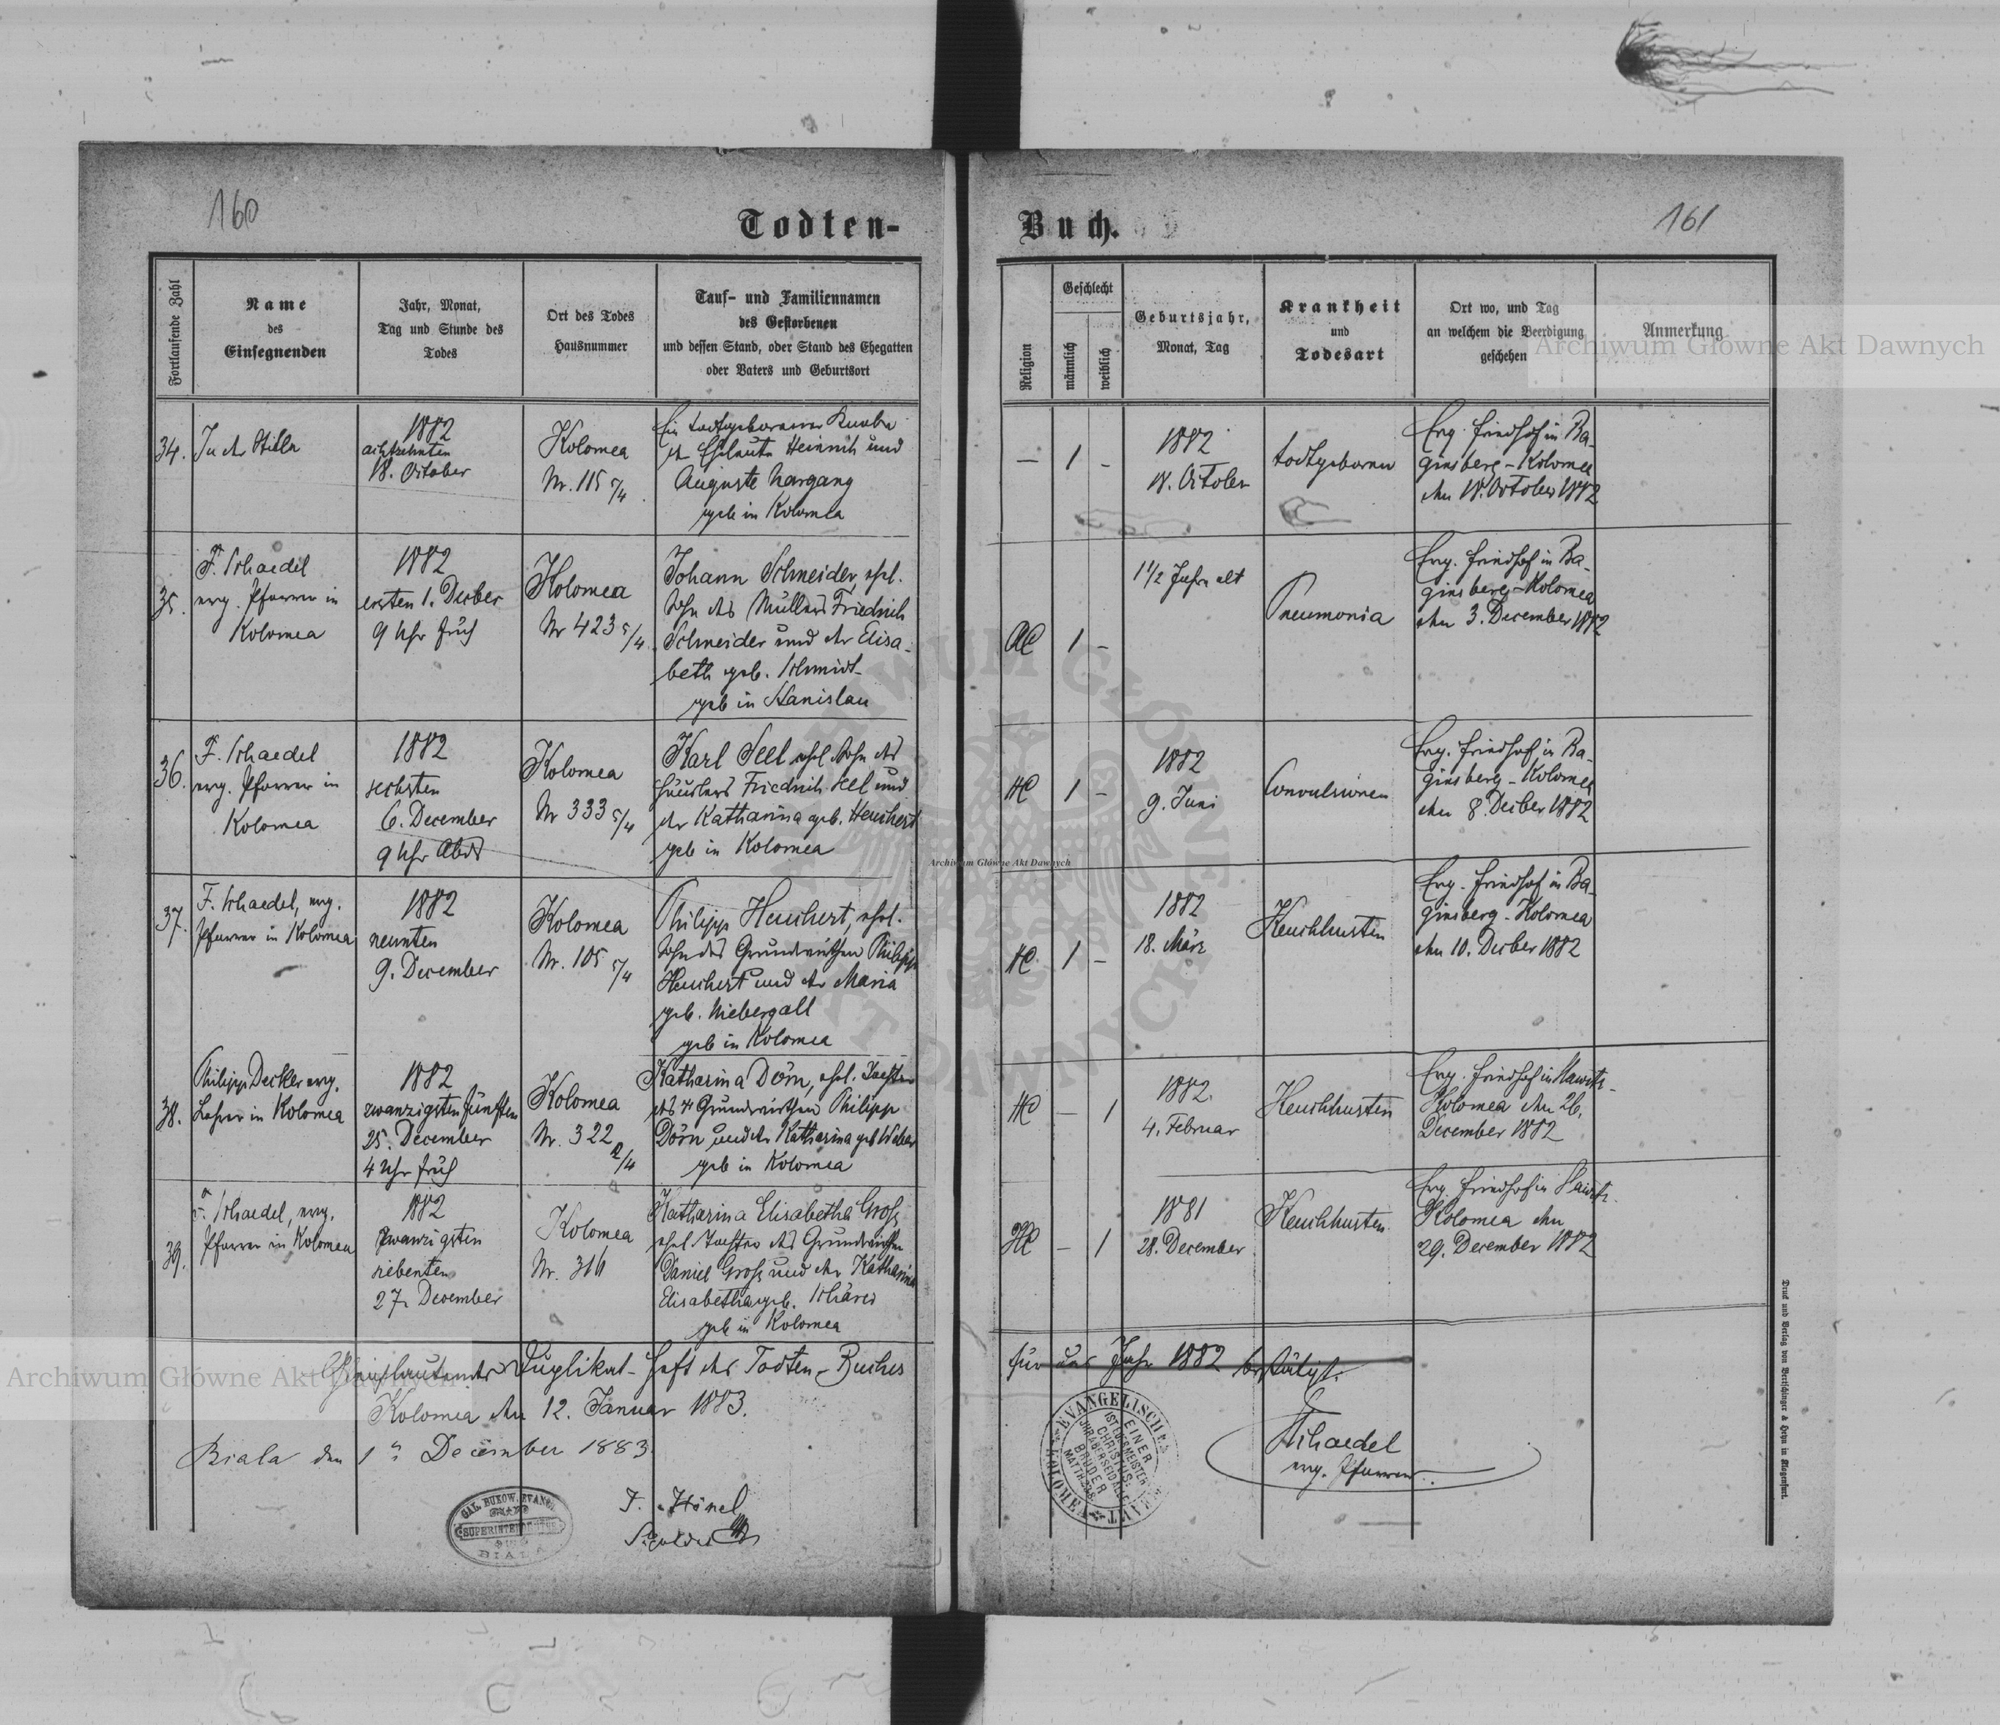 160
Todten-
Fortlaufende Zahl
Name
des
Einsegnenden
Jahr, Monat,
Tag und Stunde des
Todes
Ort des Todes
Hausnummer
Tauf- und Familiennamen
des Gestorbenen
und dessen Stand, oder Stand des Ehegatten
oder Vaters und Geburtsort
34.
In der Stille
1882
achtzehnten
18. October
Kolomea
Nr. 115 5/4
Ein todtgeborener Knabe
der Eheleute Heinrich und
Auguste Nargang
geb in Kolomea
35.
F. Schaedel
evg. Pfarrer in
Kolomea
1882
ersten 1. Decber
9 Uhr früh
Kolomea
Nr 423 5/4
Johann Schneider, ehel.
Sohn des Müllers Friedrich
Schneider und der Elisa-
beth geb. Schmidt
geb in Stanislau
36.
F. Schaedel
evg. Pfarrer in
Kolomea
1882
sechsten
6. December
9 Uhr Abds
Kolomea
Nr 333 5/4
Karl Seel ehel Sohn des
Häuslers Friedrich Seel und
der Katharina geb. Heuchert
geb in Kolomea
37.
F. Schaedel, evg.
Pfarrer in Kolomea
1882
neunten
9. December
Kolomea
Nr. 105 5/4
Philipp Heuchert, ehel.
Sohn des Grundwirthen Philipp
Heuchert und der Maria
geb. Niebergall
geb in Kolomea
38.
Philipp Decker evg.
Lehrer in Kolomea
1882
zwanzigsten fünften
25. December
4 Uhr früh
Kolomea
Nr. 322
Katharina Dörn, ehel. Tochter
des Grundwirthen Philipp
Dörn und der Katharina geb Weber
geb in Kolomea
39.
F. Schaedel, evg.
Pfarrer in Kolomea
1882
zwanzigsten
siebenten
27. December
Kolomea
Nr. 316
Katharina Elisabetha Groß
ehel Tochter des Grundwirthen
Daniel Groß und der Katharina
Elisabetha geb.
geb in Kolomea
Gleichlautendes Duplikat-Heft des Todten-Buches
Kolomea den 12. Januar 1883.
Biala den 1n December 1883.
GAL. BUKOW. EVANG.
SUPERINTENDENTUR
BIALA
F. Hönel
161
Buch.
Religion
Geschlecht
männlich
weiblich
Geburtsjahr,
Monat, Tag
Krankheit
und
Todesart
Ort wo, und Tag
an welchem die Beerdigung
geschehen
Anmerkung
— 1 –
1882
18. October
todtgeboren
Evg. Friedhof in Ba-
ginsberg - Kolomea
den 18. October 1882
AC 1 –
1 1/2 Jahr alt
Pneumonia
Evg. Friedhof in Ba-
ginsberg - Kolomea
den 3. December 1882
HC 1 –
1882
9. Juni
Convulsionen
Evg. Friedhof in Ba-
ginsberg - Kolomea
den 8. Decber 1882
HC 1 –
1882
18. März
Keuchhusten
Evg. Friedhof in Ba-
ginsberg - Kolomea
den 10. Decber 1882
HC — 1
1882.
4. Februar
Keuchhusten
Evg. Friedhof in
Kolomea den 26.
December 1882
HC – 1
1881
28. December
Keuchhusten
Evg. Friedhof in
Kolomea den
29. December 1882
für das Jahr 1882 bestätigt.
EVANGELISCHE
KOLOMEA
EINER
IST EUER MEISTER
CHRISTUS
IHR ABER SEID ALLE
BRÜDER
MATTH
Schaedel
evg. Pfarrer.
Druck und Verlag von Bertschinger & Heyn in Klagenfurt.
Archiwum Główne Akt Dawnych
Archiwum Główne Akt Dawnych
Archiwum Główne Akt Dawnych
ARCHIWUM GŁÓWNE AKT DAWNYCH